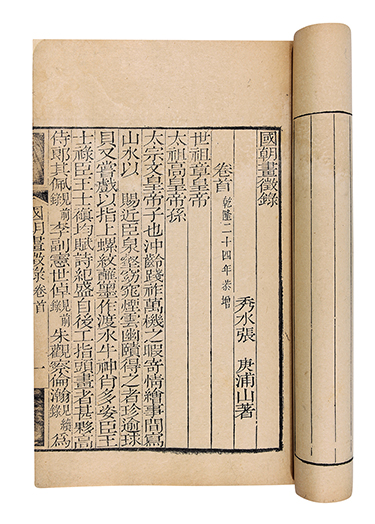 國朝畫徵錄
秀水張 庚浦山著
卷首 乾隆二十四年恭增
世祖章皇帝
太祖高皇帝孫
太宗文皇帝子也沖齡踐祚萬機之暇寄情繪事間寫
山水以 賜近臣泉壑窈窕煙雲幽賾得之者珍逾球
貝又嘗戲以指上螺紋蘸墨作渡水牛神肖多姿臣王
士祿臣王士禛均賦詩紀盛自後工指頭畫者甚夥高
侍郎其佩見前錄李副憲世倬見前錄朱觀察倫瀚見續錄爲
國朝畫徵錄 卷首 一